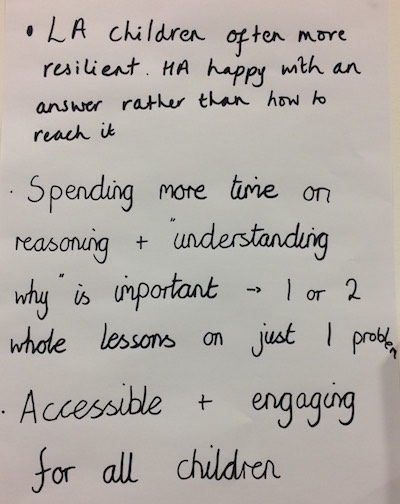 • LA children often more
resilient. HA happy with an
answer rather than how to
reach it
· Spending more time on
reasoning + "understanding
why" is important → 1 or 2
whole lessons on just 1 problem
· Accessible + engaging
for all children